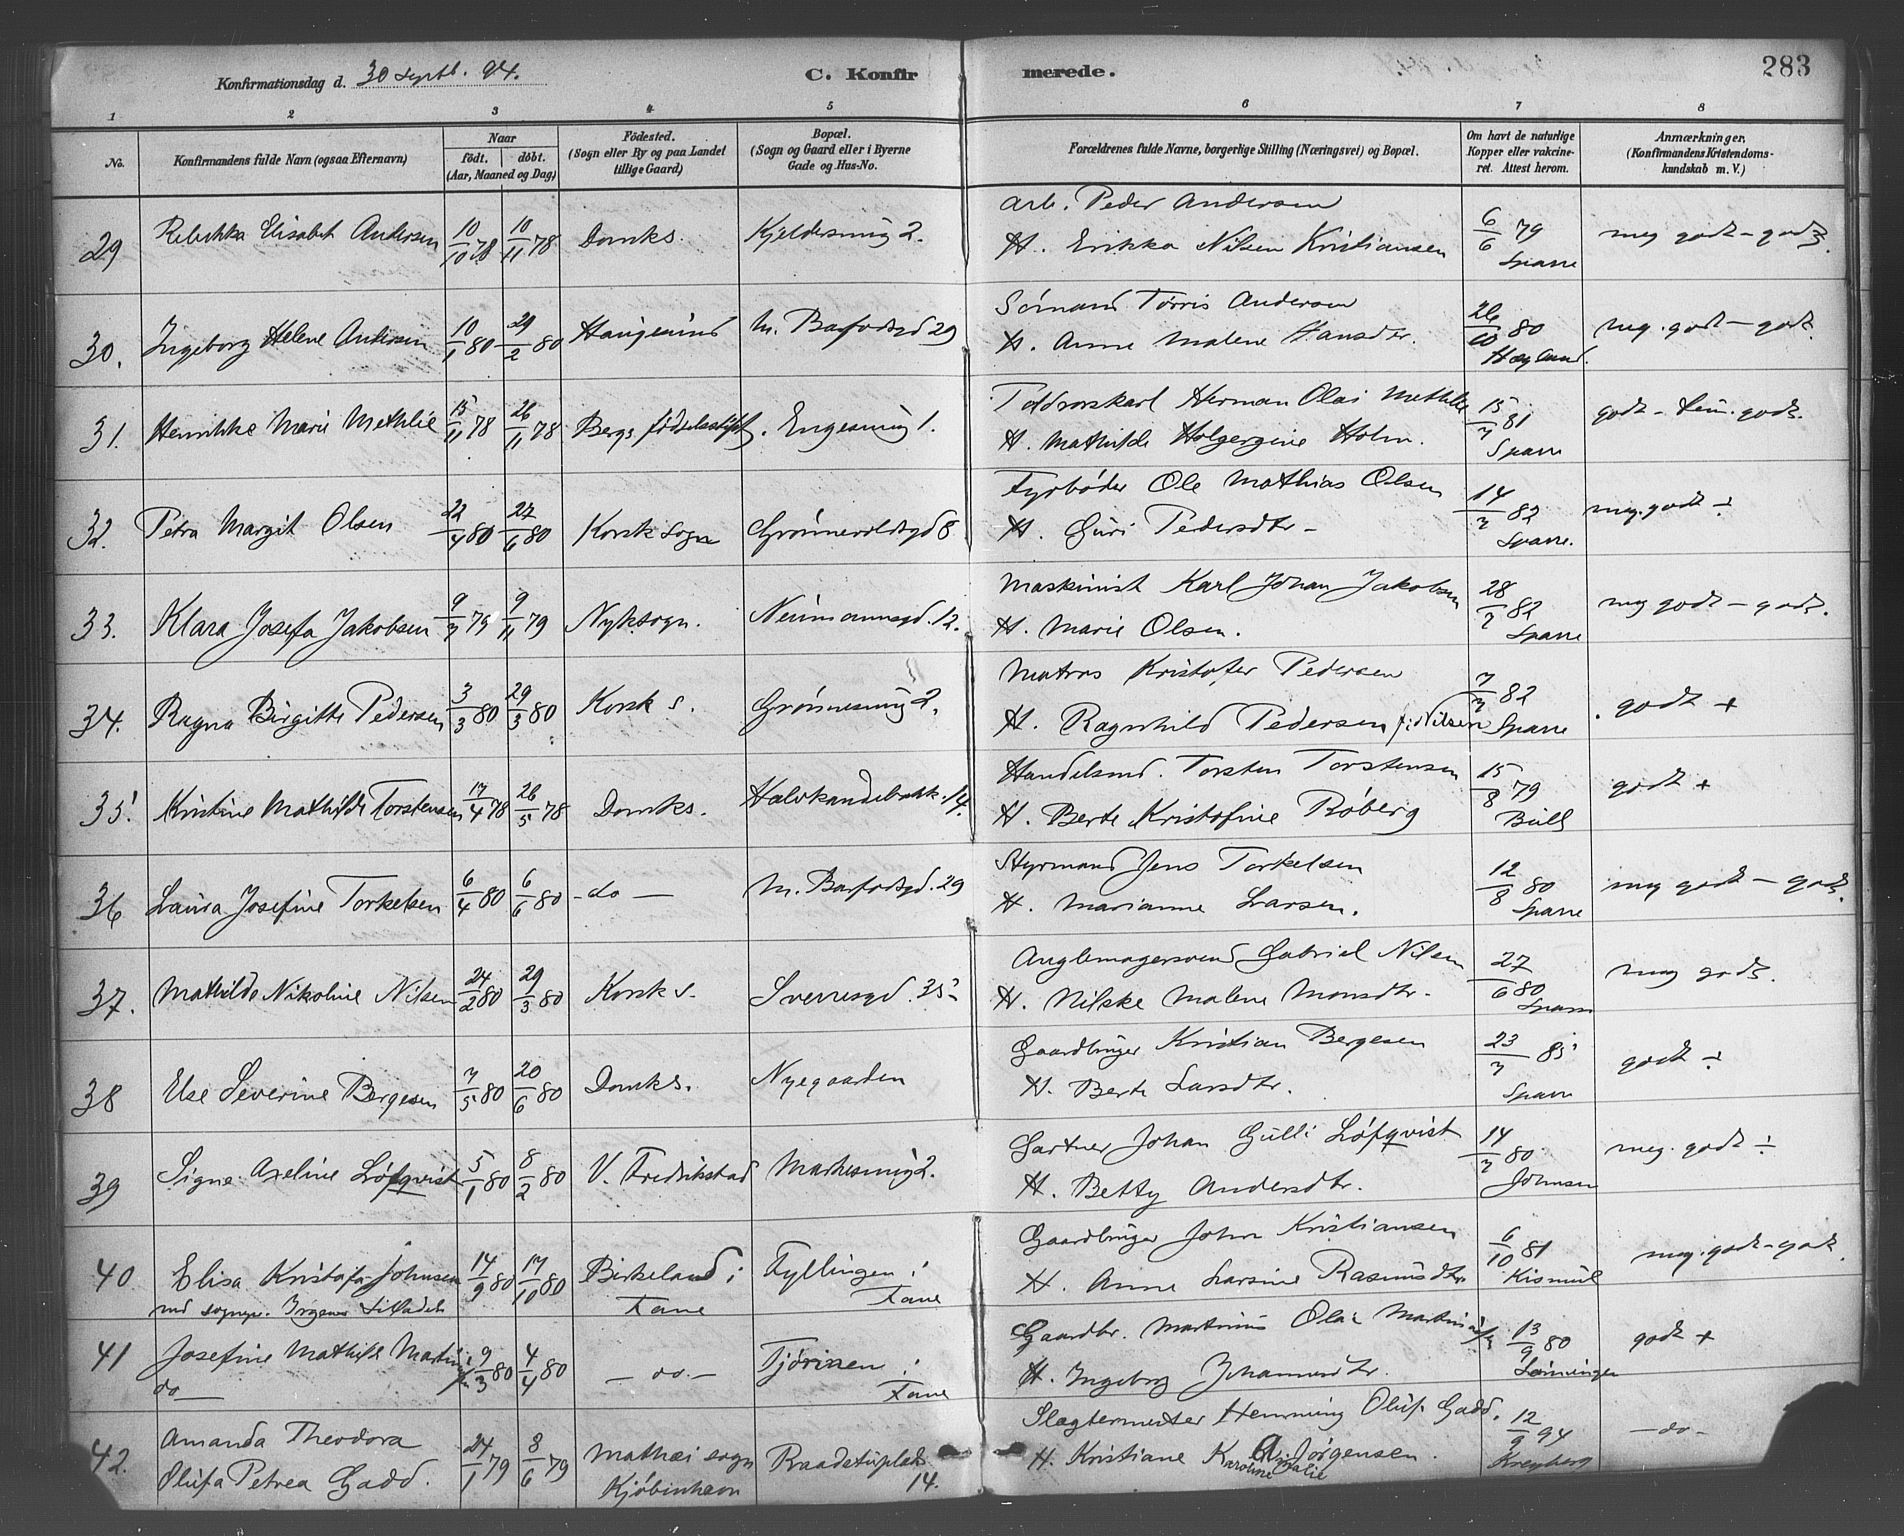 Konfirmationsdag d. 30 Septb. 94.
C. Konfirmerede.
283
1 2 3 4 5 6 7 8
No.
Konfirmandens fulde Navn (ogsaa Efternavn)
Naar
født. døbt.
(Aar, Maaned og Dag)
Fødested.
(Sogn eller By og paa Landet
tillige Gaard)
Bopæl.
(Sogn og Gaard eller i Byerne
Gade og Hus-No.
Forældrenes fulde Navne, borgerlige Stilling (Næringsvei) og Bopæl.
Om havt de naturlige
Kopper eller vakcine-
ret. Attest herom.
Anmærkninger,
(Konfirmandens Kristendoms-
kundskab m. V.)
29 Rebekka Elisabet Andersen 10/10 78 10/11 78 Domks. Kjeldesmug 2. Arb. Peder Andersen 6/6 79 meg godt - godt.
H. Erikka Nilsen Kristiansen Sparre
30. Ingeborg Helene Andersen 10/1 80 29/2 80 Haugesund N. Barfodsgd 29 Sømand Tørris Andersen 26/10 80 meg. godt - godt.
H. Anna Malene Hansdtr. Hægland.
31. Henrikke Marie Methlie 15/11 78 26/11 78 Bergs fødselsstift. Engesmug 1. Toldrorskarl Herman Olai Methlie 15/7 81 godt - tem. godt.
H. Mathilde Holgergine Holm. Sparre
32. Petra Margit Olsen 22/4 80 27/6 80 Korsk sogn Grønnevoldsgd 8 Fyrbøder Ole Mathias Olsen 14/7 82 meg. godt ÷
H. Guri Pedersdtr - Sparre.
33. Klara Josefa Jakobsen 9/7 79 9/11 79 Nyk sogn. Neumannsgd. 12. Maskinist Karl Johan Jakobsen 28/7 82 meg godt - godt.
H. Marie Olsen. Sparre
34. Ragna Birgitte Pedersen 3/3 80 29/3 80 Korsk s. Grønnesmug 2. Matros Kristofer Pedersen 7/7 82 godt +
H. Ragnhild Pedersen f. Nilsen Sparre
35. Kristine Mathilde Torstensen 17/4 78 26/5 78 Domks. Halvkandebakk. 14. Handelsmd. Torsten Torstensen 15/8 79 godt +
H. Berte Kristofine Røberg Bull
36 Laura Josefine Torkelsen 6/4 80 6/6 80 - do - N. Barfodsgd. 29 Styrmand Jens Torkelsen 12/8 80 meg godt - godt.
H. Marianne Larsen. Sparre
37. Mathilde Nikoline Nilsen 24/2 80 29/3 80 Korsk s. Sverresgd. 35 - Gabriel Nilsen 27/6 80 meg godt.
H. Nilske Malene Monsdtr. Sparre
38 Else Severine Bergesen 7/5 80 20/6 80 Domks. Nyegaarden Gaardbruger Kristian Bergesen 23/7 85 godt ÷
H. Berte Larsdtr. Sparre
39 Signe Axeline Løfqvist 5/1 80 8/2 80 V. Fredrikstad Markesmug 2. Gartner Johan Gulli Løfqvist 14/7 80 meg. godt ÷
H. Betty Andersdtr. Johnsen
40 Elisa Kristofa Johnsen 14/9 80 17/10 80 Birkeland i Fyllingen i Gaardbruger John Kristiansen 6/10 81 meg. godt - godt.
Fane Fane H. Anne Larsine Rasmusdtr. Kismul
41 Josefine Mathilde 9/3 80 4/4 80 - do - i Gaardbr. Martinus Olai 13/9 80 godt +
do - Fane H. Ingeborg Johannesdtr.
42. Amanda Theodora 24/1 79 8/6 79 Mathæi sogn Raadstupladsen Slagtermester Henning Oluf Gadd. 12/9 94 - do -
Olufa Petrea Gadd. Kjøbenhavn 14. H. Kristiane Karoline Amalie Jørgensen. Kreyberg